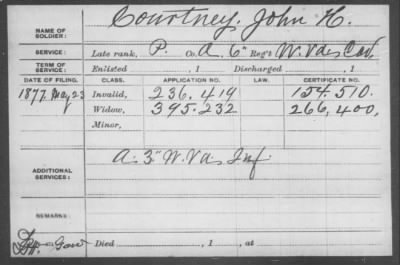 NAME OF SOLDIER: Courtney, John H.
SERVICE: Late rank, P. Co. A, 6" Reg't W. Va. Cav.
TERM OF SERVICE: Enlisted , 1 Discharged , 1
DATE OF FILING. CLASS. APPLICATION NO. LAW. CERTIFICATE NO.
1877 May 23 Invalid, 236.419 154.510.
Widow, 395.232 266,400,
Minor,
ADDITIONAL SERVICES: A. 3" W. Va. Inf.
REMARKS:
Died , 1 , at